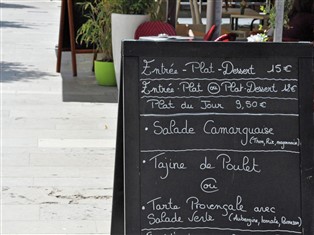 Entrée-Plat-Dessert 15€
Entrée-Plat où Plat-Dessert 12€
Plat du Jour 9,50€
• Salade Camarguaise (Thon, Riz, mayonnaise)
• Tajine de Poulet
où
• Tarte Provençale avec
Salade Verte (Aubergine, tomate,